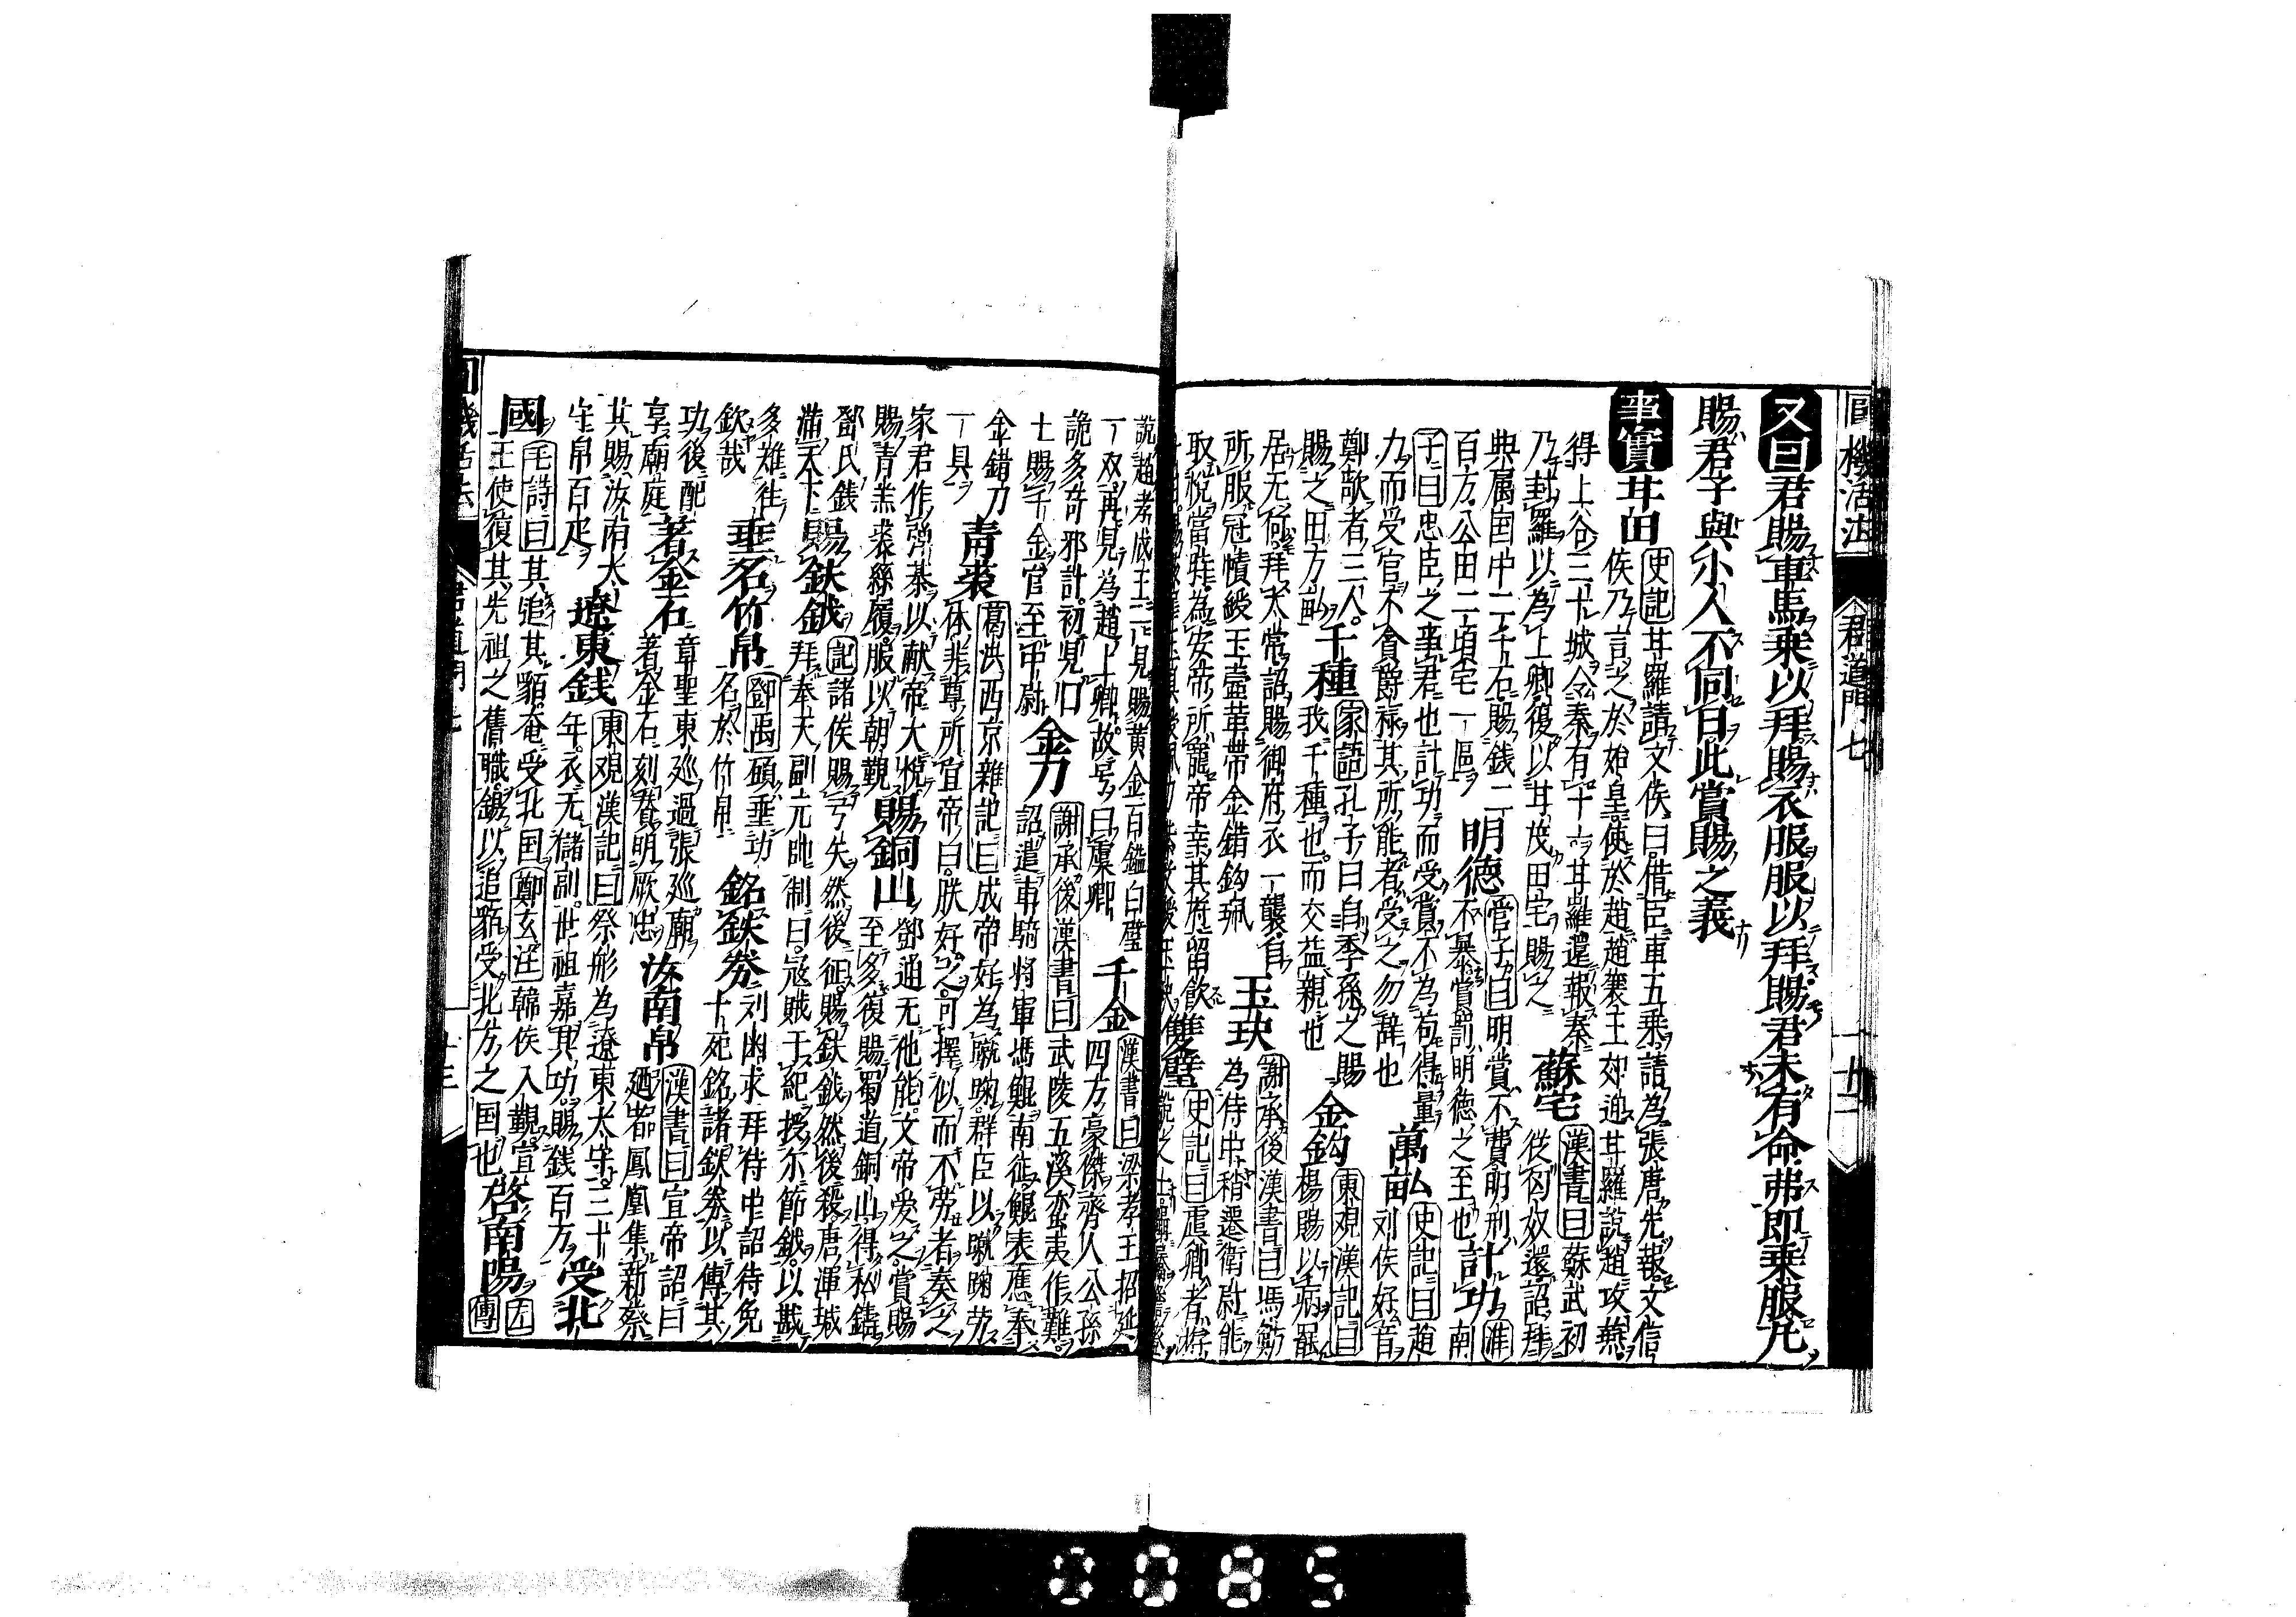 圓機活法 君道門七
又曰君賜車馬乘以拜賜衣服服以拜賜君未有命弗即乘服凢
賜君子與小人不同日此賞賜之義
事實 甘田 史記甘羅請文侯曰借臣車五乘請為張唐先報文信
侯乃言之於始皇使於趙趙襄王郊迎甘羅說趙攻燕
得上谷三十城令秦有十一甘羅還報秦
乃封羅以為上卿復以甘茂田宅賜之 蘇宅 漢書曰蘇武初
從匈奴還詔拜
典属国中二千石賜銭二
百万公田二頃宅一區 明德 管子曰明賞不費明刑
不暴賞罰明德之至也 計功 淮南
子曰忠臣之事君也計功而受賞不為苟得量
力而受官不貪爵祿其所能者受之勿辞也 萬畝 史記曰趙
刘侯好音
鄭歌者二人
賜之田万畝 千種 家語孔子曰自季孫之賜
我千種也而交益親也 金鈎 東观漢記曰
楊賜以病罷
居无何拜太常詔賜御府衣一襲自
所服冠幘綬玉壺革帶金錯鈎珮 玉玦 謝承後漢書曰馮魴
為侍中稍遷衛尉能
取悅當時為安帝所寵帝幸其府留飲
雙璧 史記曰虞卿者游
說趙孝成王一見賜黃金百鎰白璧
一双再見為趙上卿故号曰虞卿 千金 漢書曰梁孝王招延
四方豪傑齊人公孫
詭多奇邪計初見日
王賜千金官至中尉 金刀 謝承後漢書曰武陵五溪蛮夷作難
詔遣車騎将軍馮鯤南征鯤表應奉
金錯刀
一具 青裘 葛洪西京雜記曰成帝好為蹴踘群臣以蹴踘劳
体非尊所宜帝曰朕好之可擇似而不劳者奏之
家君作弾棊以献帝大悅
賜青羔裘絲履服以朝覲 賜銅山 鄧通无他能文帝愛之賞賜
至多復賜蜀道銅山得私鑄
鄧氏銭
滿天下 賜鈇鉞 記諸侯賜弓矢然後征賜鈇鉞然後殺唐渾瑊
拜奉天副元帥制曰冦賊于紀授尔節鉞以戡
多难往
欽哉 垂名竹帛 鄧禹碩垂功
名於竹帛 銘鈇券 刘幽求拜侍中詔待免
十死銘諸鈇券以傳其
功後配
享廟庭 著金石 章聖東廵過張廵廟
著金石刻賛明厥忠 汝南帛 漢書曰宣帝詔曰
廼者鳳凰集新蔡
其賜汝南太
守帛百疋 遼東銭 東观漢記曰祭肜為遼東太守三十
年衣无儲副世祖嘉其功賜銭百万 受北
國 毛詩曰其追其貊奄受北国鄭玄注韓侯入覲宣
王使復其先祖之舊職錫以追貊受北方之国也 啓南陽 左
傳